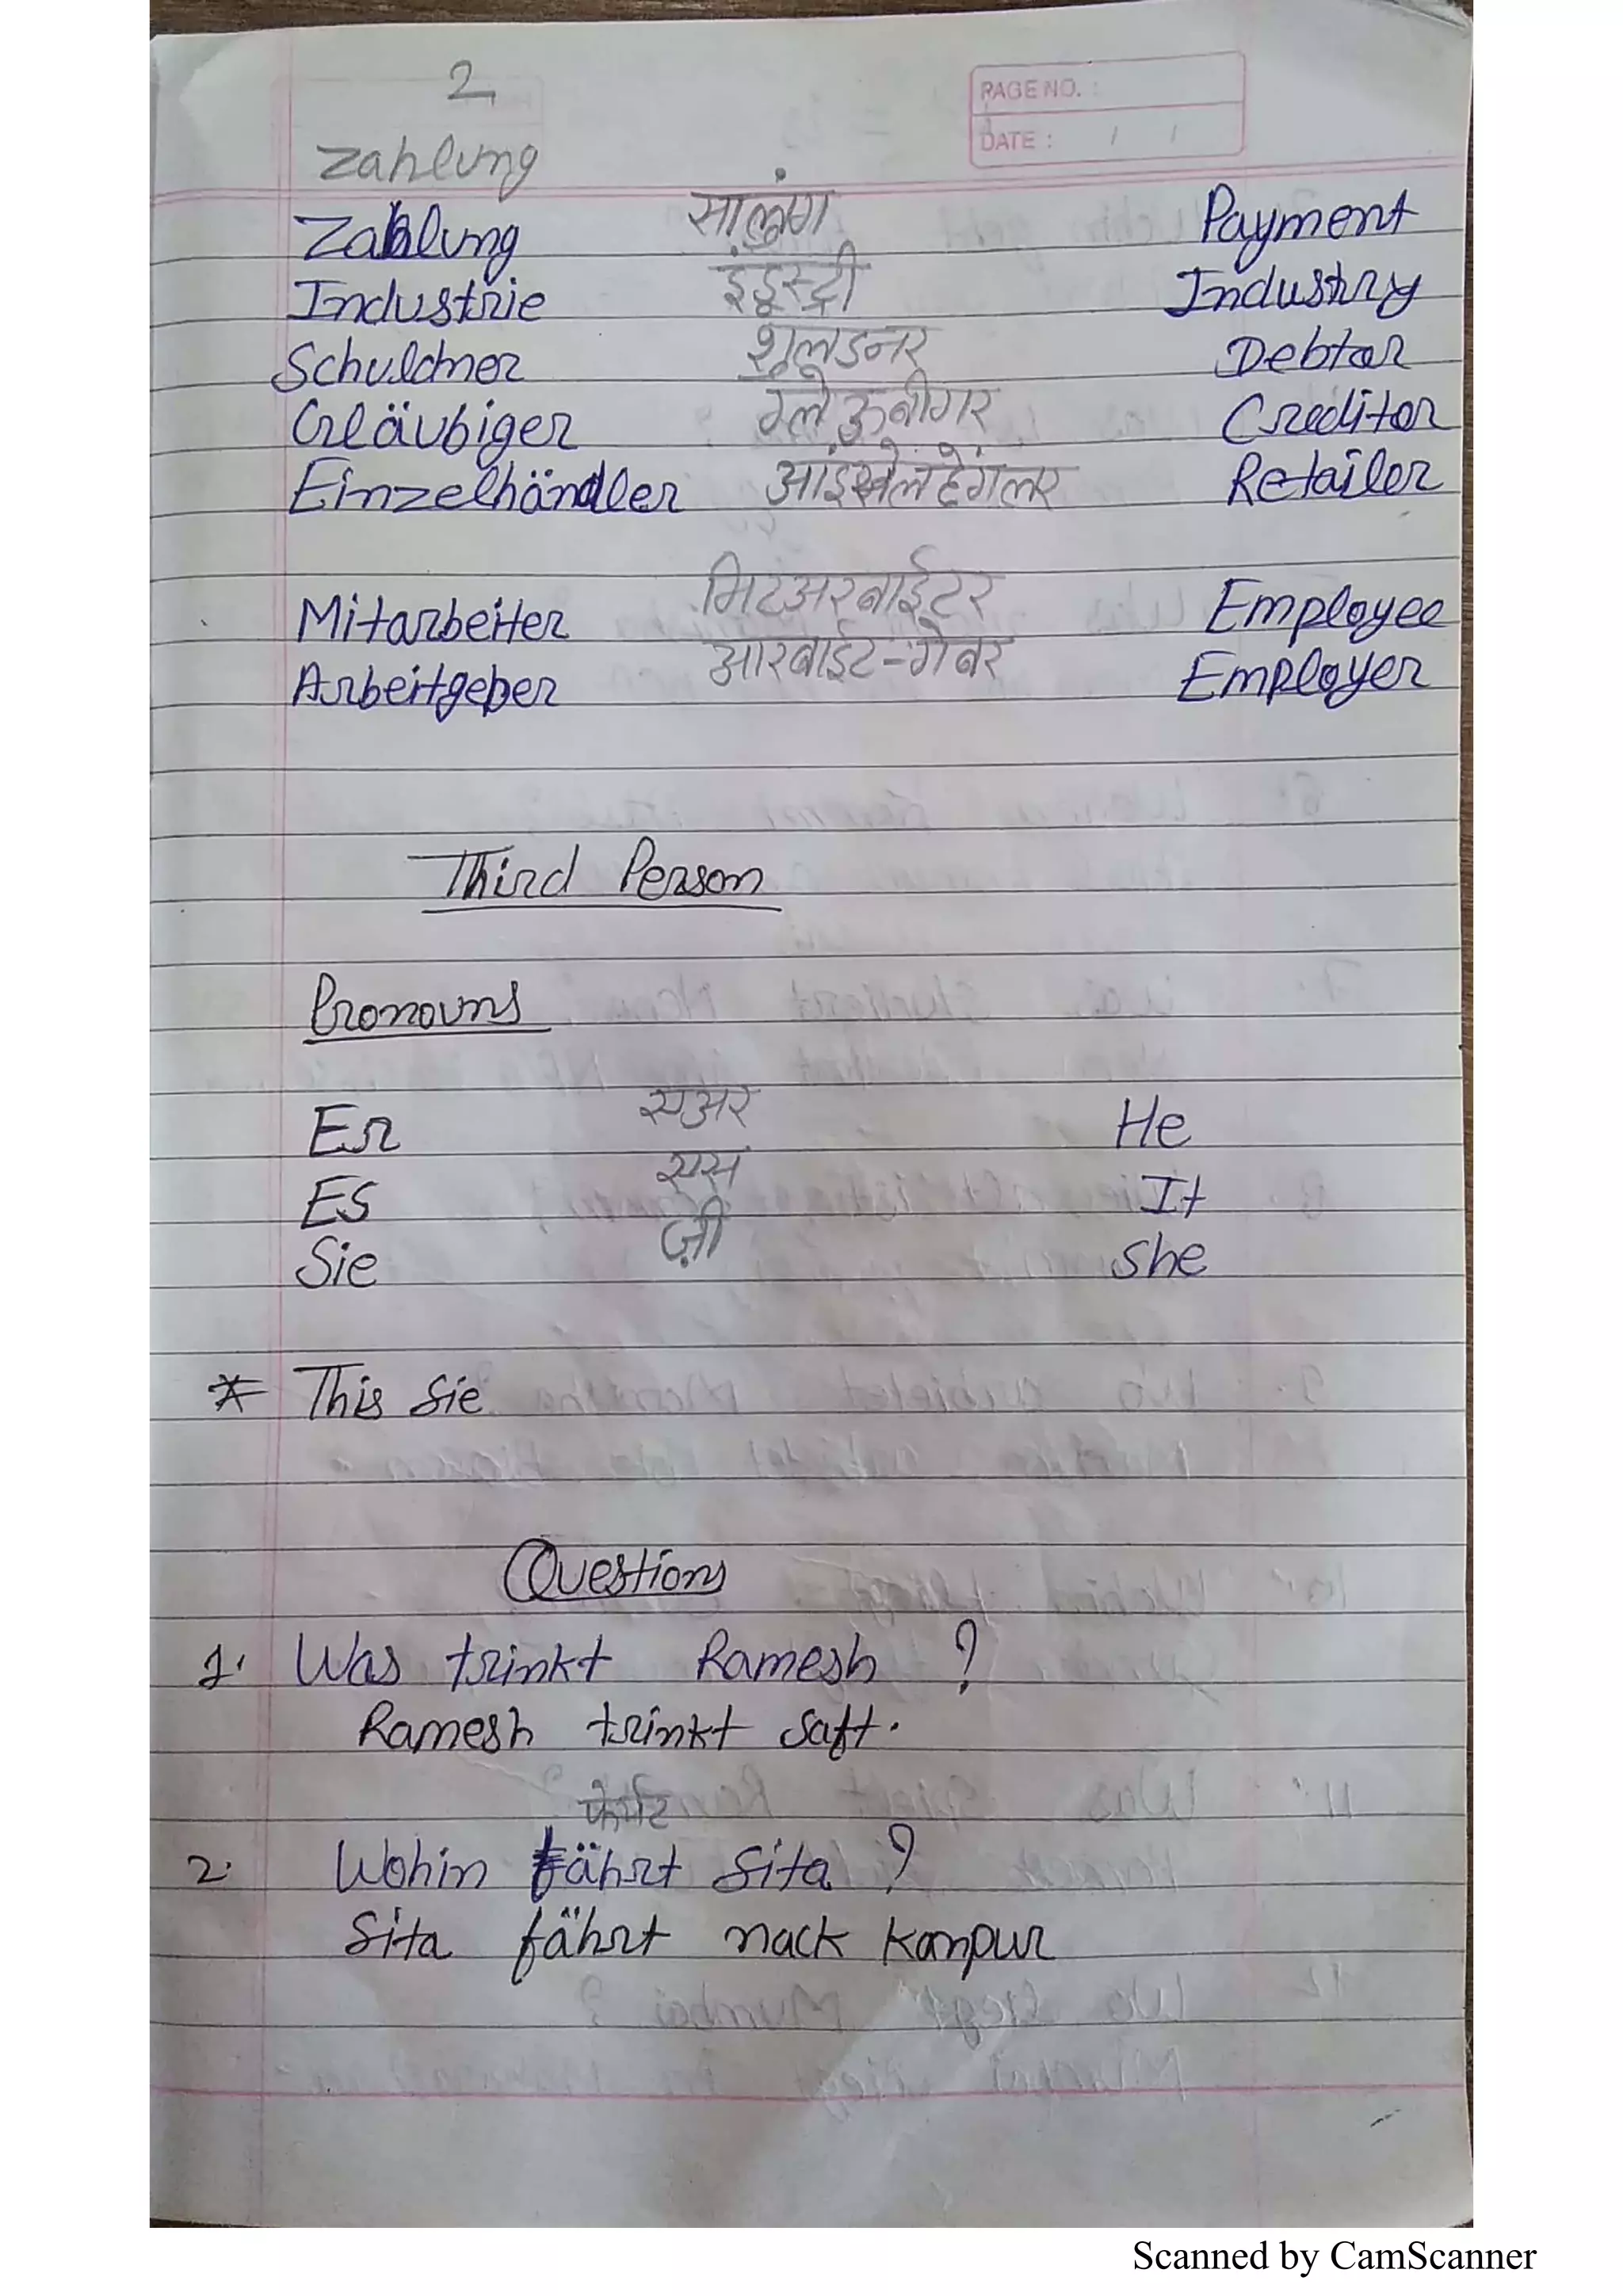 2
PAGE NO. :
DATE : / /
Zahlung
Zahlung सालुंग Payment
Industrie इंडूस्ट्री Industry
Schuldner शूलडनर Debtor
Gläubiger ग्लेऊबीगर Creditor
Einzelhändler Retailer
Mitarbeiter मिटअरबाईटर Employee
Arbeitgeber आरबाईट-गेबर Employer
Third Person
Pronouns
Er एअर He
Es एस It
Sie ज़ी She
* This Sie
Questions
1. Was trinkt Ramesh ?
Ramesh trinkt Saft.
2. Wohin fährt Sita ?
Sita fährt nack Kanpur
Scanned by CamScanner